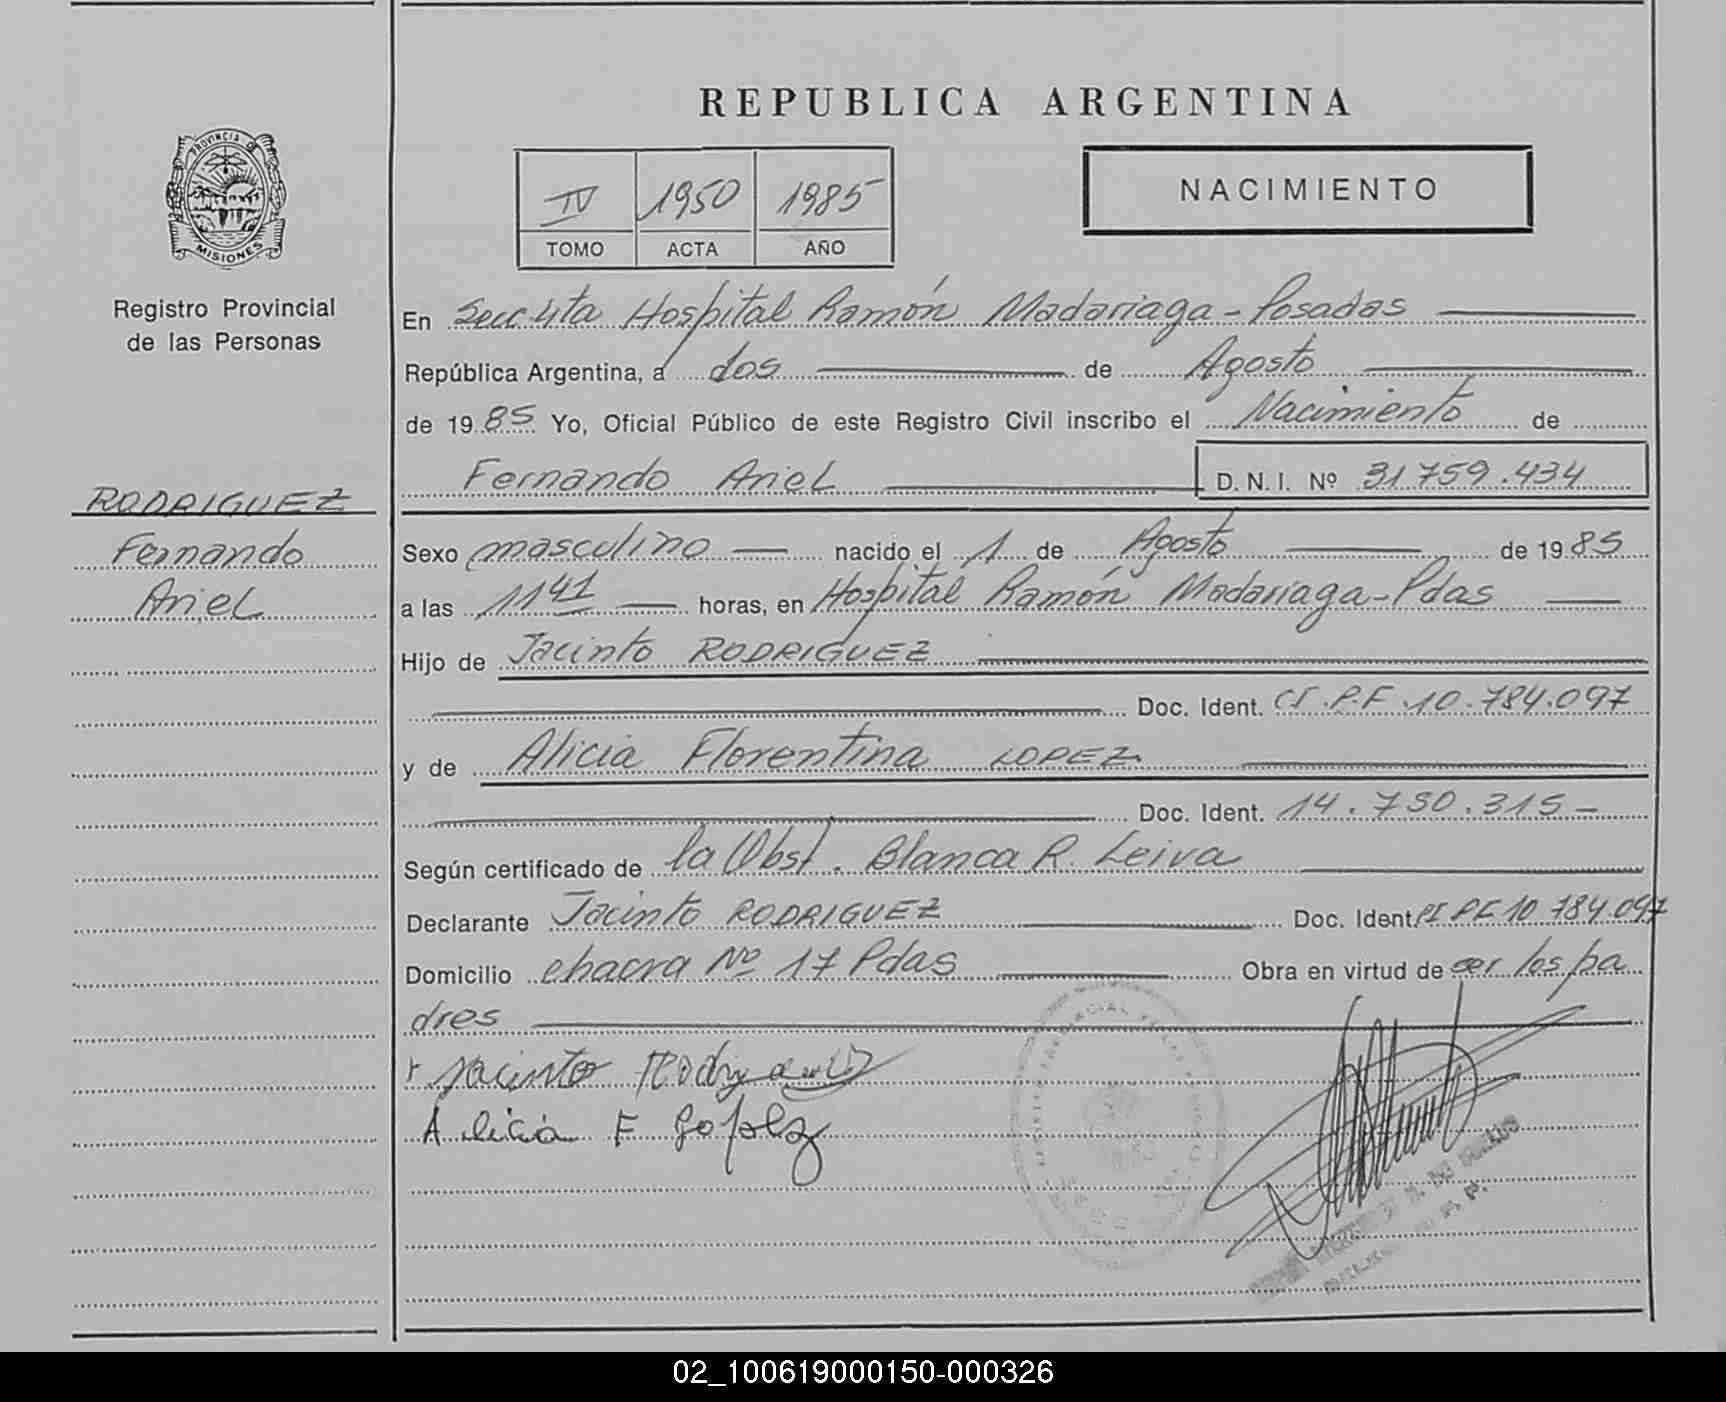 REPUBLICA ARGENTINA
PROVINCIA DE
MISIONES
Registro Provincial
de las Personas
IV 1950 1985
TOMO ACTA AÑO
NACIMIENTO
En Secc 4ta Hospital Ramón Madariaga - Posadas
República Argentina, a dos de Agosto
de 1985 Yo, Oficial Público de este Registro Civil inscribo el Nacimiento de
Fernando Ariel D.N.I. Nº 31 759.434
RODRIGUEZ
Fernando
Ariel
Sexo masculino nacido el 1 de Agosto de 1985
a las 1141 horas, en Hospital Ramón Madariaga - Pdas
Hijo de Jacinto RODRIGUEZ
Doc. Ident. CI.P.F. 10.784.097
y de Alicia Florentina LOPEZ
Doc. Ident. 14.730.315 -
Según certificado de la Obst. Blanca R. Leiva
Declarante Jacinto RODRIGUEZ Doc. Ident. CI PF 10 784.097
Domicilio chacra Nº 17 Pdas Obra en virtud de ser los pa
dres
Jacinto Rodriguez
Alicia F Lopez
02_100619000150-000326